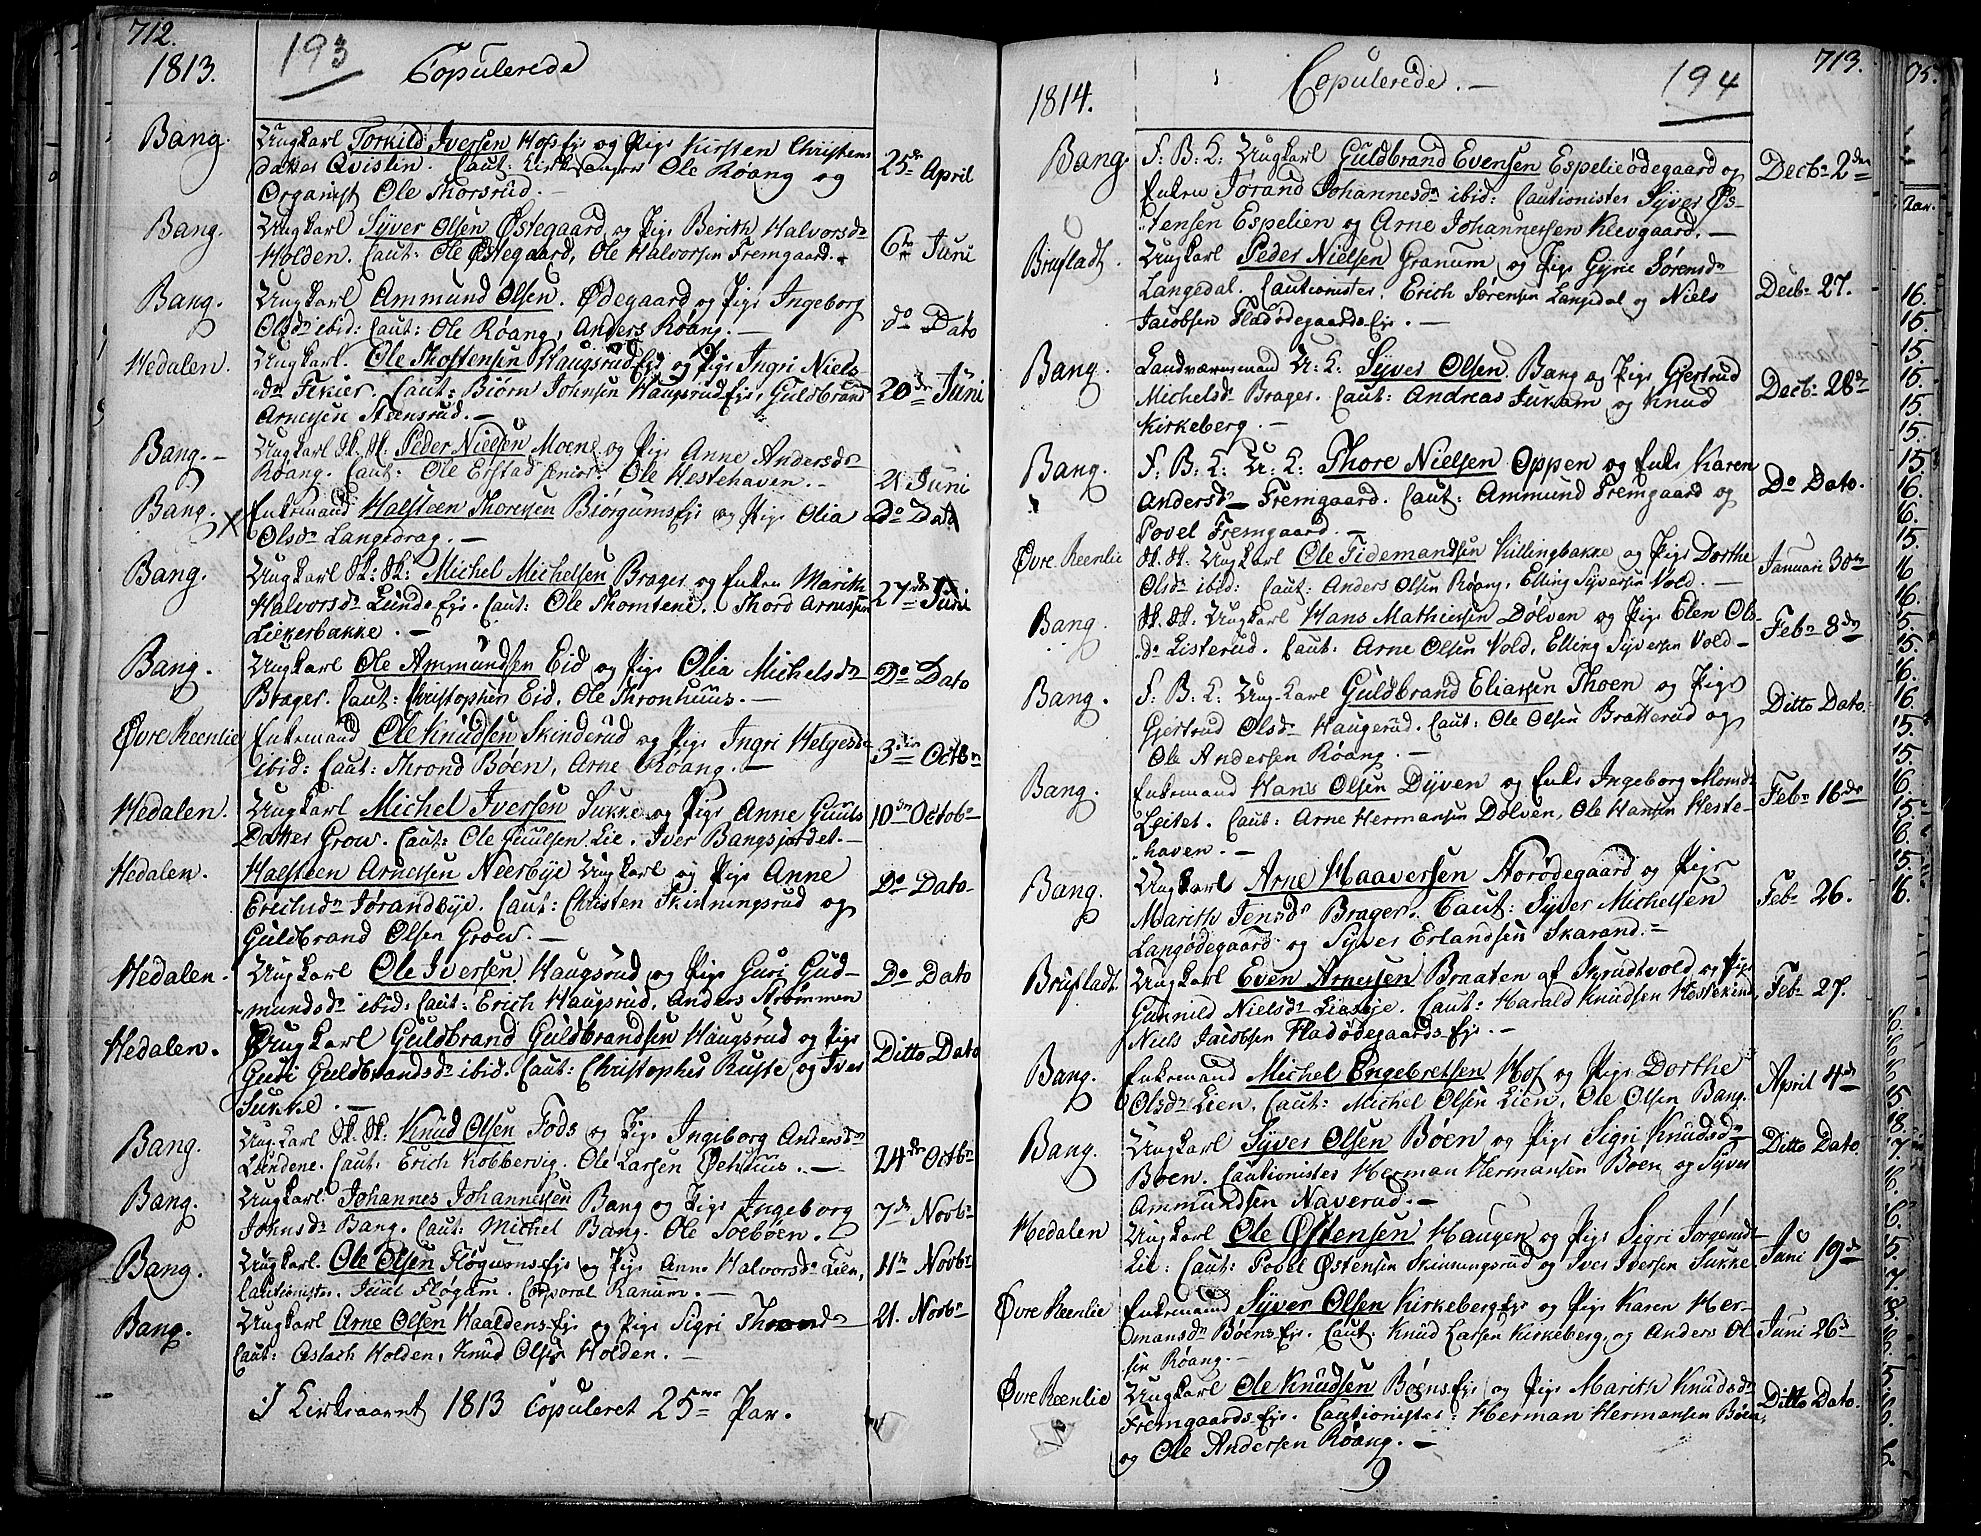 712.
1813. 193 Copulerede
Bang. Ungkarl Torkild Iversen Hofs Eje og Pige Kirsten Christens
datter Qvistlin. Caut: Kirksanger Ole Røang og 25de April
Organist Ole Thorsrud. -
Bang. Ungkarl Syver Olsen Østegaard og Pige Berith Halvorsdr
Holden. Caut: Ole Østegaard, Ole Halvorsen Fremgaard. 6te Juni
Bang. Ungkarl Ammund Olsen. Ødegaard og Pige Ingeborg
Olsdr ibid: Caut: Ole Røang, Anders Røang. - do Dato
Hedalen. Ungkarl. Ole Thostensen Haugsrud Eje og Pige Ingri Niels
dr Caut: Biørn Johnsen Haugsrud Eje, Guldbrand 20de Juni
Arnesen Steensrud. -
Bang. - Ungkarl Sk. Sk. Peder Nielsen Moene og Pige Anne Andersdr
Røang. Caut: Ole Elstad Ole Hestehaven. - 21 Juni
Bang. X Enkemand Halsteen Thoresen Biørgums Eje og Pige Olia Do Dato
Olsdr Langedrag. -
Bang. Ungkarl Sk: Sk: Michel Michelsen Brager og Enken Marith
Halvorsdr Lunde Eje. Caut: Ole Thomtene. Thord Arnesen 27de Juni
Liekerbakke. -
Bang. Ungkarl Ole Ammundsen Eid og Pige Olia Michelsdr Do Dato
Brager. Caut: Christopher Eid, Ole Thronhuus. -
Øvre Reenlie Enkemand Ole Knudsen Skinderud og Pige Ingri Helgesdr
ibid: Caut: Thrond Bøen, Arne Røang. - 3die Octbr
Hedalen. Ungkarl Michel Iversen Sukke og Pige Anne Guuls 10de Octobr
Datter Grow. Caut: Ole Guulsen Lie. Iver Bangsjordet. -
Hedalen. Halsteen Arnesen Neerbye Ungkarl og Pige Anne
Erichsdr Jørandbye. Caut: Christen Skinningsrud og Do Dato
Guldbrand Olsen Grow. -
Hedalen. Ungkarl Ole Iversen Haugsrud og Pige Guri Gud-
mundsdr ibid: Caut: Erich Haugsrud, Anders Strømmen Do Dato
Hedalen. Ungkarl Guldbrand Guldbrandsen Haugsrud og Pige
Guri Guldbrandsdr ibid. Caut: Christopher Ruste og Iver Ditto Dato
Sukke. -
Bang. Ungkarl Sk. Sk: Knud Olsen Fods og Pige Ingeborg Andersdr
Lundene. Caut. Erich Kobbervig. Ole Larsen Øehuus. - 24de Octbr
Bang. Ungkarl. Johannes Johannesen Bang og Pige Ingeborg
Johnsdr Bang. Caut: Michel Bang. Ole Soebøen. - 7de Novbr
Bang. Ungkarl. Ole Olsen Fløgums Eje og Pige Anne Halvorsdr Lien, 11te Novbr
Cautionister. Juul Fløgum. Corporal Ranum. -
Bang. Ungkarl Arne Olsen Haaldens Eje og Pige Sigri Thronds 21. Novbr
Caut: Aslach Holden, Knud Olsen Holden. -
I Kirkeaaret 1813 Copuleret 25ve Par.
713.
1814. Copulerede. - 194
Bang. F: B: C: Ungkarl Guldbrand Evensen Espelieødegaard og Decbr 2den
Enken Jørand Johannesdr ibid: Cautionister Syver Øs-
tensen Espelien og Arne Johannessen Klevgaard. -
Brufladt Ungkarl Peder Nielsen Granum og Pige Gyrie Sørensdr
Langedal. Cautionister. Erich Sørensen Langedal og Niels Decbr 27.
Jacobsen Fladødegaards Eje. -
Bang. Landværnsmand U: C: Syver Olsen Bang og Pige Gjertrud
Michelsdr Brager. Caut: Andreas Jukam og Knud Decbr 28de
Kirkeberg. -
Bang. F: B: C: U: C: Thore Nielsen Oppen og Enke Karen
Andersdr Fremgaard. Caut: Ammund Fremgaard og Do Dato.
Povel Fremgaard. -
Øvre Reenlie Sk. Sk. Ungkarl Ole Tidemandsen Killingbakke og Pige Dorthe
Olsdr ibid: Caut: Anders Olsen Røang, Elling Syversen Vold. - Januari 30te
Bang. Sk. Sk. Ungkarl Hans Mathiesen Dølven og Pige Elen Ols-
dr Listerud. Caut: Arne Olsen Vold, Elling Syversen Vold - Febr 8de
Bang. F: B: C: Ungkarl Guldbrand Eliassen Thoen og Pige
Gjertrud Olsdr Haugerud. Caut: Ole Olsen Bratterud og Ditto Dato
Ole Andersen Røang. -
Bang. Enkemand Hans Olsen Dyven og Enke Ingeborg Monsdr
Leitet. Caut: Arne Hermansen Dølven, Ole Hansen Heste- Febr 16de
haven. -
Bang. Ungkarl Arne Haaversen Storødegaard og Pige
Marith Jensdr Brager. Caut: Syver Michelsen Febr 26.
Langødegaard og Syver Erlandsen Skarand. -
Brufladt. Ungkarl Even Arnesen Braaten af Skrudtvold og Pige
Gunnild Nielsdr Lieseje. Caut: Harald Knudsen Hestekind, Febr 27.
Niels Jacobsen Fladødegaards Eje. -
Bang. Enkemand Michel Engebretsen Hof og Pige Dorthe
Olsdr Lien. Caut: Michel Olsen Lien, Ole Olsen Bang. April 4de
Bang. Ungkarl Syver Olsen Bøen og Pige Sigri Knudsdr Ditto Dato
Boen. Cautionister Herman Hermansen Boen og Syver
Ammundsen Naverud. -
Hedalen Ungkarl Ole Østensen Haugen og Pige Sigri Jørgensdr
Lie: Caut: Povel Østensen Skinningsrud og Iver Iversen Sukke. Juni 19de
Øvre Reenlie Enkemand Syver Olsen Kirkeberg Eje og Pige Karen Her-
mansdr Bøens Eje. Caut. Knud Larsen Kirkeberg, og Anders Ol- Juni 26de
sen Røang. -
Øvre Reenlie Ungkarl Ole Knudsen Bøens Eje og Pige Marith Knudsdr
Fremgaards Eje. Cautionister: Herman Hermansen Bøen, Ditto Dato.
og Ole Andersen Røang. -